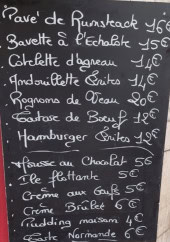 Pavé de Rumsteack 16€
Bavette à l'Echalote 15€
Côtelette d'agneau 14€
Andouillette Frites 14€
Rognons de Veau 20€
Tartare de Boeuf 12€
Hamburger Frites 12€
Mousse au Chocolat 5€
Ile flottante 5€
Crème aux Oeufs 5€
Creme Brûlée 6€
Pudding maison 4€
Tarte Normande 6€